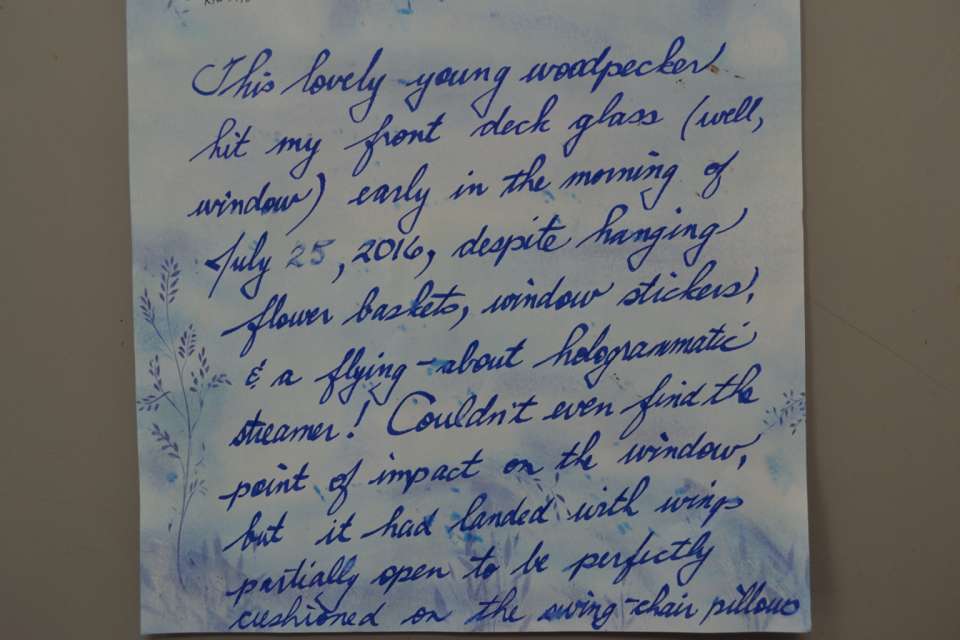 This lovely young woodpecker
hit my front deck glass (well,
window) early in the morning of
July 25, 2016, despite hanging
flower baskets, window stickers,
& a flying-about hologrammatic
streamer! Couldn't even find the
point of impact on the window,
but it had landed with wings
partially open to be perfectly
cushioned on the swing-chair pillows